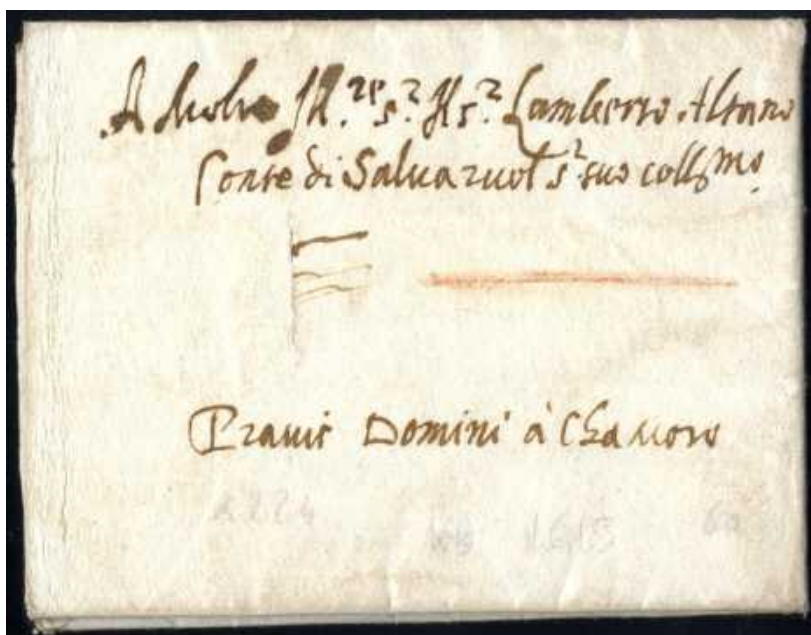 Al Molto Ill.re s.r Il s.r Lamberto Altano
Conte di Saluaruol s.r suo coll.mo
Prauis Domini à Chamoro
1615